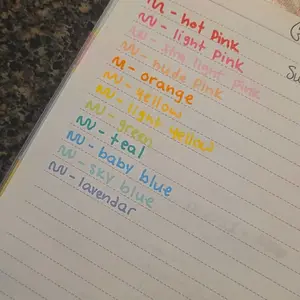 - hot pink
- light pink
- light pink
- nude pink
- orange
- yellow
- light yellow
- green
- teal
- baby blue
- sky blue
- lavendar